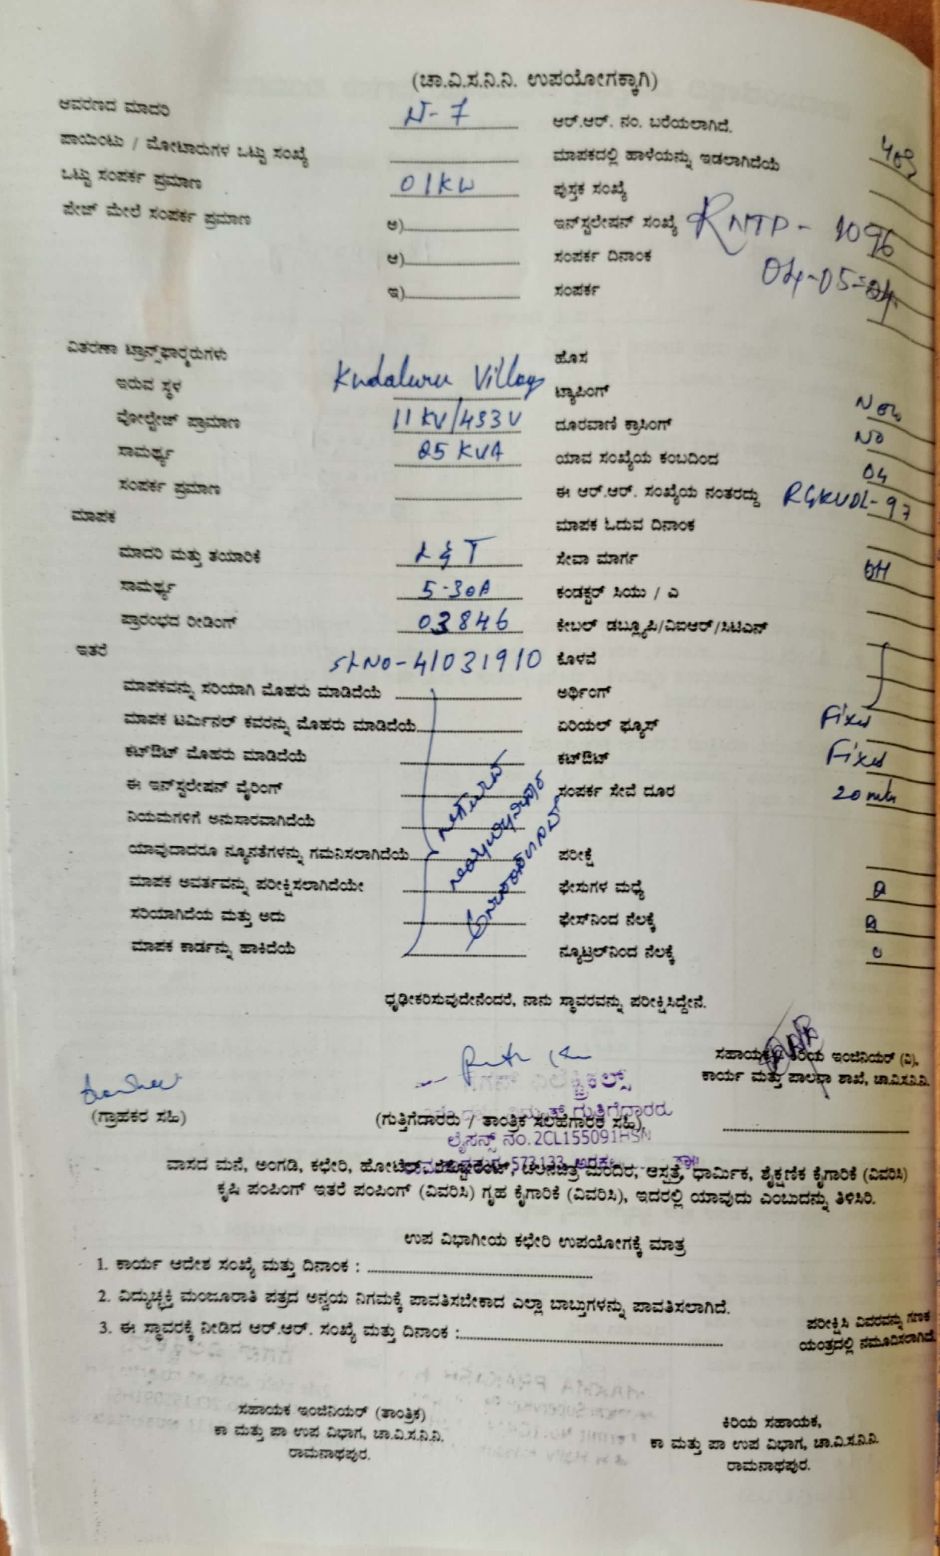 (ಚಾ.ವಿ.ಸ.ನಿ.ನಿ. ಉಪಯೋಗಕ್ಕಾಗಿ)
ಆವರಣದ ಮಾದರಿ N-7 ಆರ್.ಆರ್. ನಂ. ಬರೆಯಲಾಗಿದೆ.
ಪಾಯಿಂಟು / ಮೋಟಾರುಗಳ ಒಟ್ಟು ಸಂಖ್ಯೆ ಮಾಪಕದಲ್ಲಿ ಹಾಳೆಯನ್ನು ಇಡಲಾಗಿದೆಯೆ
ಒಟ್ಟು ಸಂಪರ್ಕ ಪ್ರಮಾಣ 01KW ಪುಸ್ತಕ ಸಂಖ್ಯೆ
ಪೇಜ್ ಮೇಲೆ ಸಂಪರ್ಕ ಪ್ರಮಾಣ ಅ) ಇನ್‌ಸ್ಟಲೇಷನ್ ಸಂಖ್ಯೆ RNTP - 1096
ಆ) ಸಂಪರ್ಕ ದಿನಾಂಕ 04-05-
ಇ) ಸಂಪರ್ಕ
ವಿತರಣಾ ಟ್ರಾನ್ಸ್‌ಫಾರ್ಮರುಗಳು ಹೊಸ
ಇರುವ ಸ್ಥಳ Kudaluru Village ಟ್ಯಾಪಿಂಗ್
ವೋಲ್ಟೇಜ್ ಪ್ರಾಮಾಣ 11KV/433V ದೂರವಾಣಿ ಕ್ರಾಸಿಂಗ್ NO
ಸಾಮರ್ಥ್ಯ 25 KVA ಯಾವ ಸಂಖ್ಯೆಯ ಕಂಬದಿಂದ 04
ಸಂಪರ್ಕ ಪ್ರಮಾಣ ಈ ಆರ್.ಆರ್. ಸಂಖ್ಯೆಯ ನಂತರದ್ದು RGKUDL-97
ಮಾಪಕ ಮಾಪಕ ಓದುವ ದಿನಾಂಕ
ಮಾದರಿ ಮತ್ತು ತಯಾರಿಕೆ L & T ಸೇವಾ ಮಾರ್ಗ OH
ಸಾಮರ್ಥ್ಯ 5-30A ಕಂಡಕ್ಟರ್ ಸಿಯು / ಎ
ಪ್ರಾರಂಭದ ರೀಡಿಂಗ್ 03846 ಕೇಬಲ್ ಡಬ್ಲ್ಯೂಪಿ/ವಿಐಆರ್/ಸಿಟಿಎಸ್
ಇತರೆ SLNO-41031910 ಕೊಳವೆ
ಮಾಪಕವನ್ನು ಸರಿಯಾಗಿ ಮೊಹರು ಮಾಡಿದೆಯೆ ಅರ್ಥಿಂಗ್
ಮಾಪಕ ಟರ್ಮಿನಲ್ ಕವರನ್ನು ಮೊಹರು ಮಾಡಿದೆಯೆ ಏರಿಯಲ್ ಫ್ಯೂಸ್ Fixed
ಕಟ್‌ಔಟ್ ಮೊಹರು ಮಾಡಿದೆಯೆ ಕಟ್‌ಔಟ್ Fixed
ಈ ಇನ್‌ಸ್ಟಲೇಷನ್ ವೈರಿಂಗ್ ಸಂಪರ್ಕ ಸೇವೆ ದೂರ 20 mts
ನಿಯಮಗಳಿಗೆ ಅನುಸಾರವಾಗಿದೆಯೆ
ಯಾವುದಾದರೂ ನ್ಯೂನತೆಗಳನ್ನು ಗಮನಿಸಲಾಗಿದೆಯೆ ಪರೀಕ್ಷೆ
ಮಾಪಕ ಅವರ್ತವನ್ನು ಪರೀಕ್ಷಿಸಲಾಗಿದೆಯೇ ಫೇಸುಗಳ ಮಧ್ಯೆ
ಸರಿಯಾಗಿದೆಯೆ ಮತ್ತು ಅದು ಫೇಸ್‌ನಿಂದ ನೆಲಕ್ಕೆ
ಮಾಪಕ ಕಾರ್ಡನ್ನು ಹಾಕಿದೆಯೆ ನ್ಯೂಟ್ರಲ್‌ನಿಂದ ನೆಲಕ್ಕೆ
ಧೃಢೀಕರಿಸುವುದೇನೆಂದರೆ, ನಾನು ಸ್ಥಾವರವನ್ನು ಪರೀಕ್ಷಿಸಿದ್ದೇನೆ.
ಸಹಾಯಕ/ಕಿರಿಯ ಇಂಜಿನಿಯರ್ (ವಿ),
ಕಾರ್ಯ ಮತ್ತು ಪಾಲನಾ ಶಾಖೆ, ಚಾ.ವಿ.ಸ.ನಿ.ನಿ.
(ಗ್ರಾಹಕರ ಸಹಿ) (ಗುತ್ತಿಗೆದಾರರು / ತಾಂತ್ರಿಕ ಸಲಹೆಗಾರರ ಸಹಿ)
ಲೈಸನ್ಸ್ ನಂ.2CL155091HSN
ವಾಸದ ಮನೆ, ಅಂಗಡಿ, ಕಛೇರಿ, ಹೋಟೆಲ್, ರೆಸ್ಟೋರೆಂಟ್, ಚಲನಚಿತ್ರ ಮಂದಿರ, ಆಸ್ಪತ್ರೆ, ಧಾರ್ಮಿಕ, ಶೈಕ್ಷಣಿಕ ಕೈಗಾರಿಕೆ (ವಿವರಿಸಿ)
ಕೃಷಿ ಪಂಪಿಂಗ್ ಇತರೆ ಪಂಪಿಂಗ್ (ವಿವರಿಸಿ) ಗೃಹ ಕೈಗಾರಿಕೆ (ವಿವರಿಸಿ), ಇದರಲ್ಲಿ ಯಾವುದು ಎಂಬುದನ್ನು ತಿಳಿಸಿರಿ.
ಉಪ ವಿಭಾಗೀಯ ಕಛೇರಿ ಉಪಯೋಗಕ್ಕೆ ಮಾತ್ರ
1. ಕಾರ್ಯ ಆದೇಶ ಸಂಖ್ಯೆ ಮತ್ತು ದಿನಾಂಕ :
2. ವಿದ್ಯುಚ್ಛಕ್ತಿ ಮಂಜೂರಾತಿ ಪತ್ರದ ಅನ್ವಯ ನಿಗಮಕ್ಕೆ ಪಾವತಿಸಬೇಕಾದ ಎಲ್ಲಾ ಬಾಬ್ತುಗಳನ್ನು ಪಾವತಿಸಲಾಗಿದೆ.
3. ಈ ಸ್ಥಾವರಕ್ಕೆ ನೀಡಿದ ಆರ್.ಆರ್. ಸಂಖ್ಯೆ ಮತ್ತು ದಿನಾಂಕ :
ಪರೀಕ್ಷಿಸಿ ವಿವರವನ್ನು ಗಣಕ
ಯಂತ್ರದಲ್ಲಿ ನಮೂದಿಸಲಾಗಿದೆ.
ಸಹಾಯಕ ಇಂಜಿನಿಯರ್ (ತಾಂತ್ರಿಕ)
ಕಾ ಮತ್ತು ಪಾ ಉಪ ವಿಭಾಗ, ಚಾ.ವಿ.ಸ.ನಿ.ನಿ.
ರಾಮನಾಥಪುರ.
ಕಿರಿಯ ಸಹಾಯಕ,
ಕಾ ಮತ್ತು ಪಾ ಉಪ ವಿಭಾಗ, ಚಾ.ವಿ.ಸ.ನಿ.ನಿ.
ರಾಮನಾಥಪುರ.